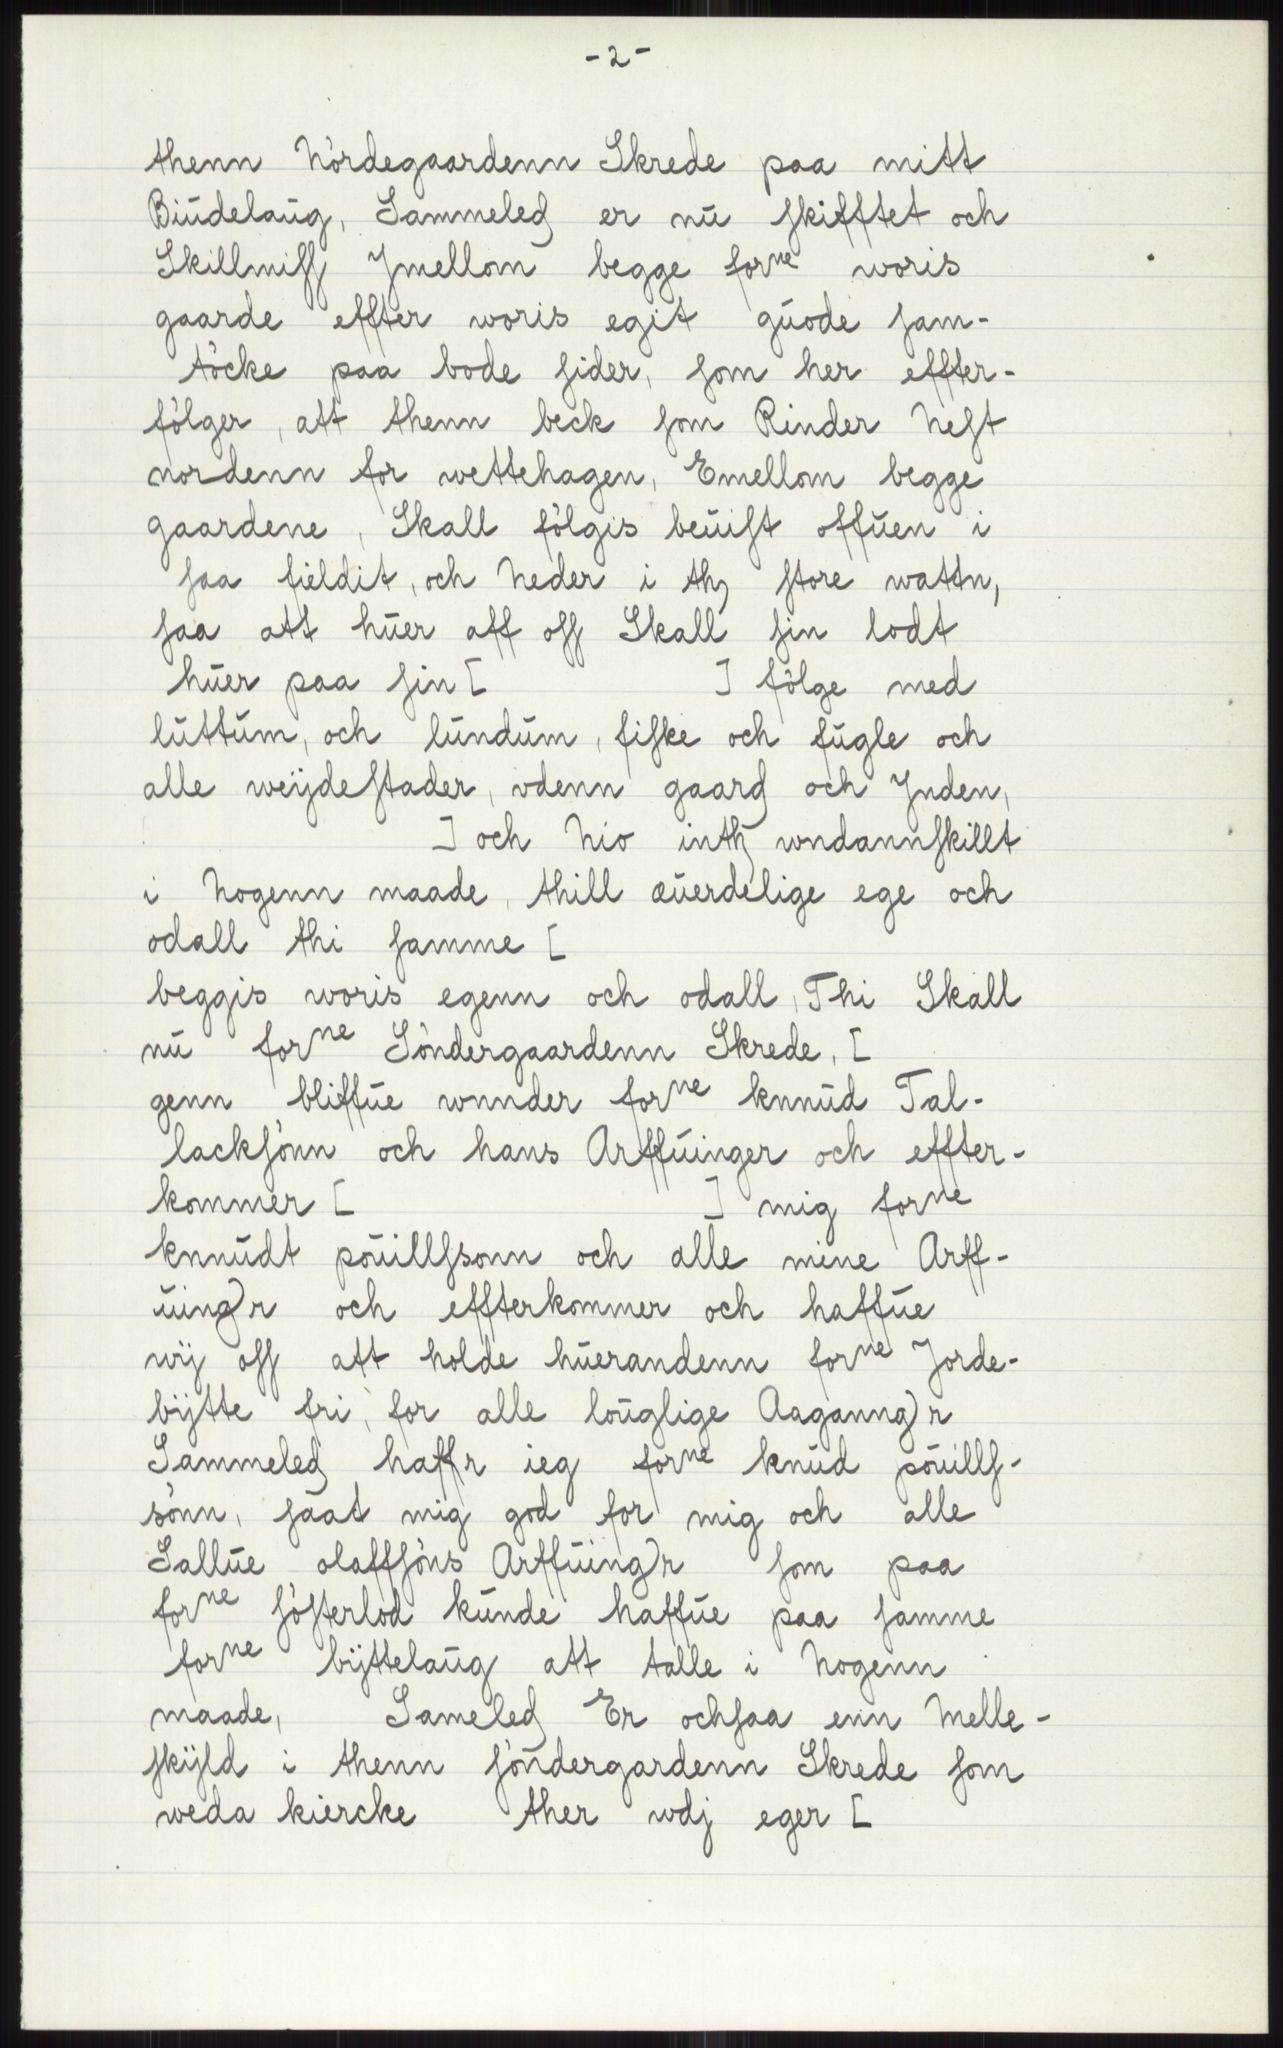 - 2 -
thenn Nørdegaardenn Skrede paa mitt
Biudelaug, Sammeledʒ er nu skifftet och
Skillmiss Jmellom begge forne woris
gaarde effter woris egit guode sam-
tøcke paa bode sider, som her effter-
følger, att thenn beck som Rinder Nest
nordenn for wettehagen, Emellom begge
gaardene, Skall følgis beuist offuen i
saa fieldit, och Neder i thʒ store wattn,
saa att huer aff oss Skall sin lodt
huer paa sin [ ] følge med
luttum, och lundum, fiske och fugle och
alle weijdestader, vdenn gaardʒ och Jnden,
] och Nio inthʒ wndannskillt
i Nogenn maade, thill æuerdelige ege och
odall thi samme [
beggis woris egenn och odall, Thi Skall
nu forne Søndergaardenn Skrede, [
genn bliffue wnnder forne knnud Tal-
lacksønn och hans Arffuinger och effter-
kommer [ ] mig forne
knnudt pouillssonn och alle mine Arff-
uingr och effterkommer och haffue
wij oss att holde huerandenn forne Jorde-
bijtte fri, for alle louglige Aaganngr
Sammeledʒ haffr ieg forne knud pouills-
sønn, saat mig god for mig och alle
Sallue olaffsøns Arffuingr som paa
forne søsterlod kunde haffue paa samme
forne bijttelaug att talle i Nogenn
maade, Sameledʒ Er ochsaa enn Melle-
skijld i thenn søndergardenn Skrede som
weda kiercke ther wdj eger [